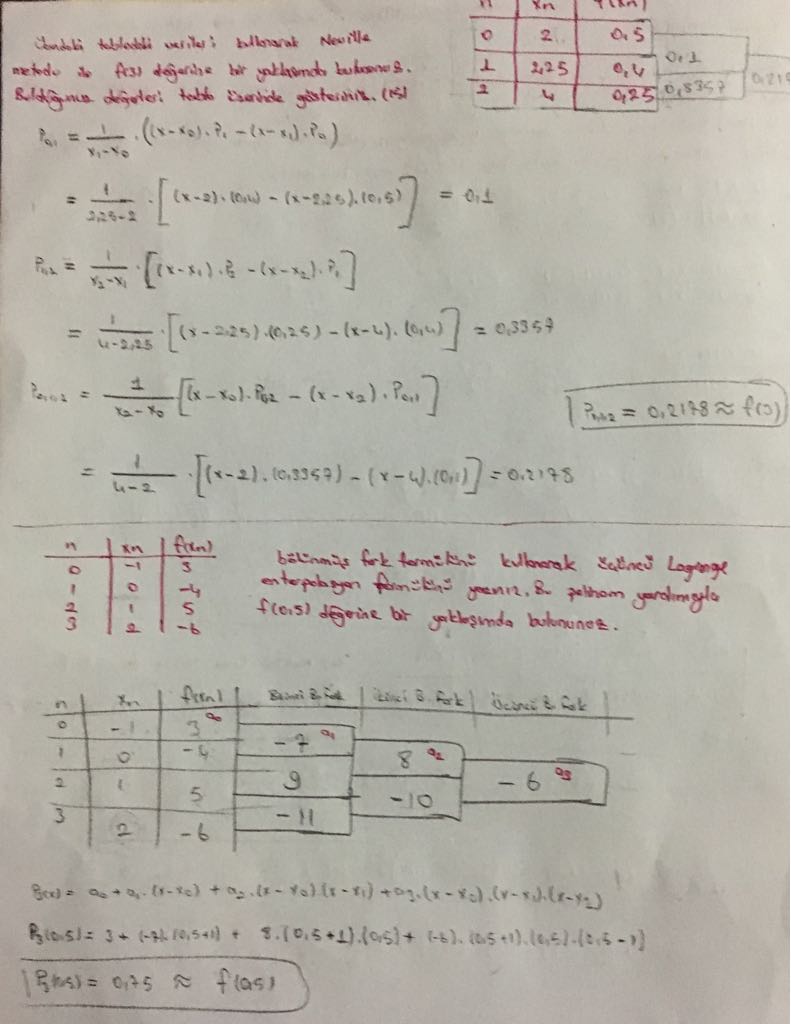 n xn f(xn)
0 2 0,5
1 2,25 0,4
2 4 0,25
0,1
0,3357
Yandaki tablodaki verileri kullanarak Neville
metodu ile f(3) değerine bir yaklaşımda bulununuz.
Bulduğunuz değerleri tablo üzerinde gösteriniz. (15)
P0,1 = 1/(x1-x0) . ((x-x0).P1 - (x-x1).P0)
= 1/(2,25-2) . [(x-2).(0,4) - (x-2,25).(0,5)] = 0,1
P1,2 = 1/(x2-x1) . [(x-x1).P2 - (x-x2).P1]
= 1/(4-2,25) . [(x-2,25).(0,25) - (x-4).(0,4)] = 0,3357
P0,1,2 = 1/(x2-x0) [(x-x0).P1,2 - (x-x2).P0,1]
P0,1,2 = 0,2178 ≈ f(3)
= 1/(4-2) . [(x-2).(0,3357) - (x-4).(0,1)] = 0,2178
n xn f(xn)
0 -1 3
1 0 -4
2 1 5
3 2 -6
bölünmüş fark formülünü kullanarak üçüncü Lagrange
enterpolasyon formülünü yazınız. Bu polinom yardımıyla
f(0,5) değerine bir yaklaşımda bulununuz.
n xn f(xn) Birinci B. Fark İkinci B. Fark Üçüncü B. Fark
0 -1 3 a0
-7 a1
1 0 -4
8 a2
9
-6 a3
2 1 5
-10
-11
3 2 -6
P3(x) = a0 + a1.(x-x0) + a2.(x-x0).(x-x1) + a3.(x-x0).(x-x1).(x-x2)
P3(0,5) = 3 + (-7).(0,5+1) + 8.(0,5+1).(0,5) + (-6).(0,5+1).(0,5).(0,5-1)
P3(0,5) = 0,75 ≈ f(0,5)